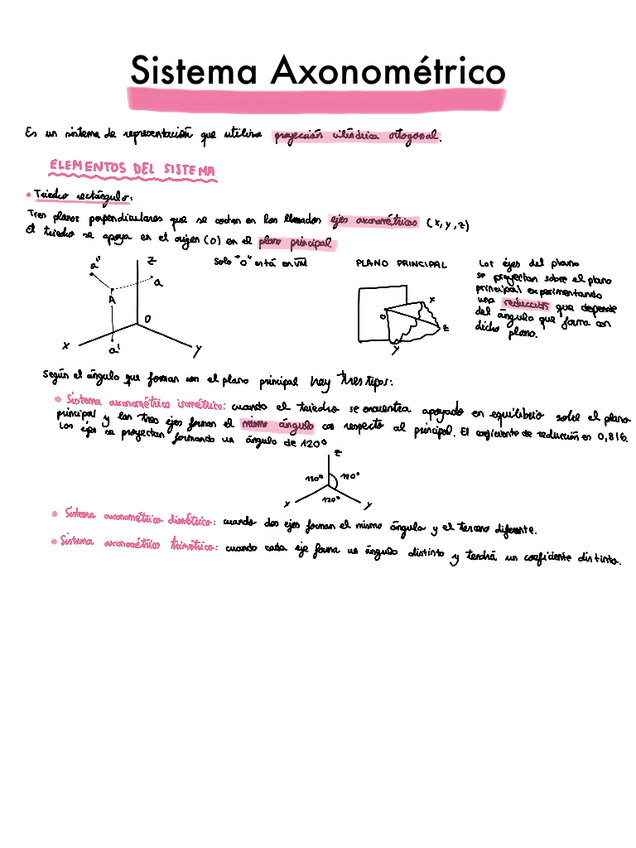 Sistema Axonométrico
Es un sistema de representación que utiliza proyección cilíndrica ortogonal.
ELEMENTOS DEL SISTEMA
• Triedro rectángulo:
Tres planos perpendiculares que se cortan en los llamados ejes axonométricos (x, y, z)
El triedro se apoya en el origen (O) en el plano principal
a''
A
a
a'
Z
O
X
Y
Solo "O" está en VM
PLANO PRINCIPAL
O
X
Z
Y
Los ejes del plano
se proyectan sobre el plano
principal experimentando
una reducción que depende
del ángulo que forma con
dicho plano.
Según el ángulo que forman con el plano principal hay tres tipos:
• Sistema axonométrico isométrico: cuando el triedro se encuentra apoyado en equilibrio sobre el plano
principal y los tres ejes forman el mismo ángulo con respecto al principal. El coeficiente de reducción es 0,816.
Los ejes se proyectan formando un ángulo de 120°
Z
120°
120°
120°
X
Y
• Sistema axonométrico dimétrico: cuando dos ejes forman el mismo ángulo y el tercero diferente.
• Sistema axonométrico trimétrico: cuando cada eje forma un ángulo distinto y tendrá un coeficiente distinto.